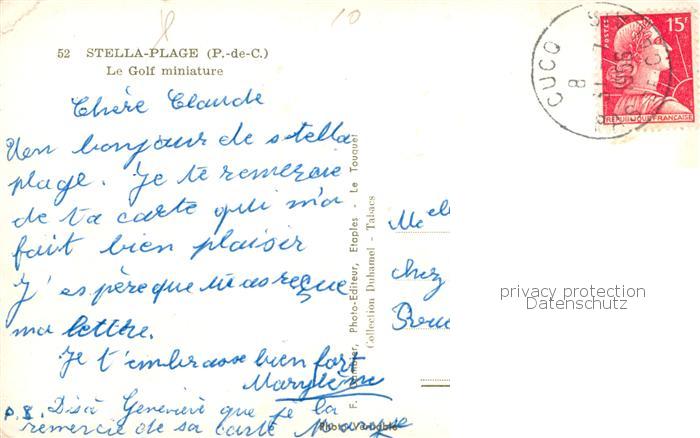 52 STELLA-PLAGE (P.-de-C.)
Le Golf miniature
Chère Claude
Un bonjour de stella
plage. Je te remercie
de ta carte qui m'a
fait bien plaisir
J'espère que tu as reçue
ma lettre.
Je t'embrasse bien fort
Marylène
P.S. Dis à Geneviève que je la
remercie de sa carte
Photo-Editeur, Etaples - Le Touquet
Collection Duhamel - Tabacs
Photo Véritable
CUCQ
POSTES
15F
REPUBLIQUE FRANCAISE
Melle
chez
privacy protection
Datenschutz